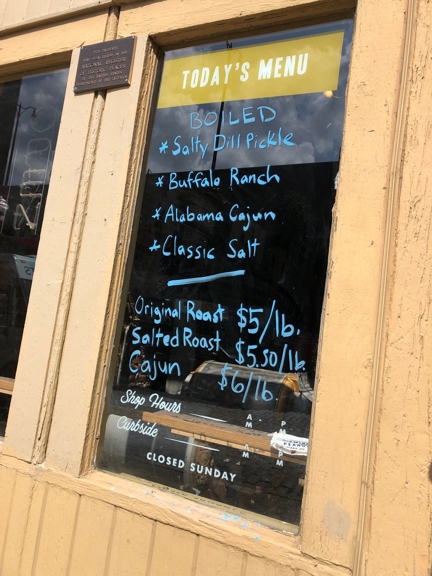 TODAY'S MENU
BOILED
* Salty Dill Pickle
* Buffalo Ranch
* Alabama Cajun
* Classic Salt
Original Roast $5/lb.
Salted Roast $5.50/lb.
Cajun $6/lb.
Shop Hours AM - PM
Curbside AM - PM
CLOSED SUNDAY